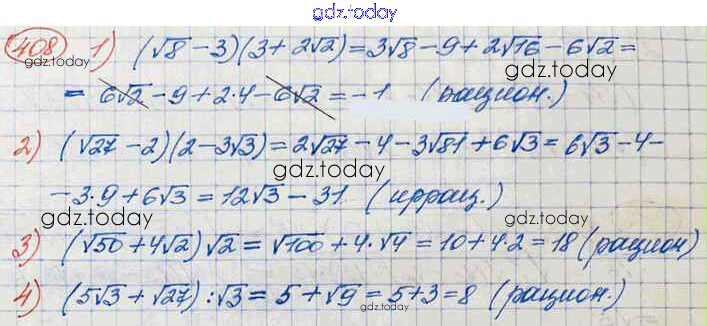 gdz.today
408 1) (√8 − 3)(3 + 2√2) = 3√8 − 9 + 2√16 − 6√2 =
gdz.today gdz.today
= 6√2 − 9 + 2·4 − 6√2 = −1 (рацион.)
2) (√27 − 2)(2 − 3√3) = 2√27 − 4 − 3√81 + 6√3 = 6√3 − 4 −
gdz.today
− 3·9 + 6√3 = 12√3 − 31. (иррац.)
gdz.today gdz.today
3) (√50 + 4√2)√2 = √100 + 4·√4 = 10 + 4·2 = 18 (рацион)
gdz.today
4) (5√3 + √27) : √3 = 5 + √9 = 5 + 3 = 8 (рацион.)
gdz.today gdz.today